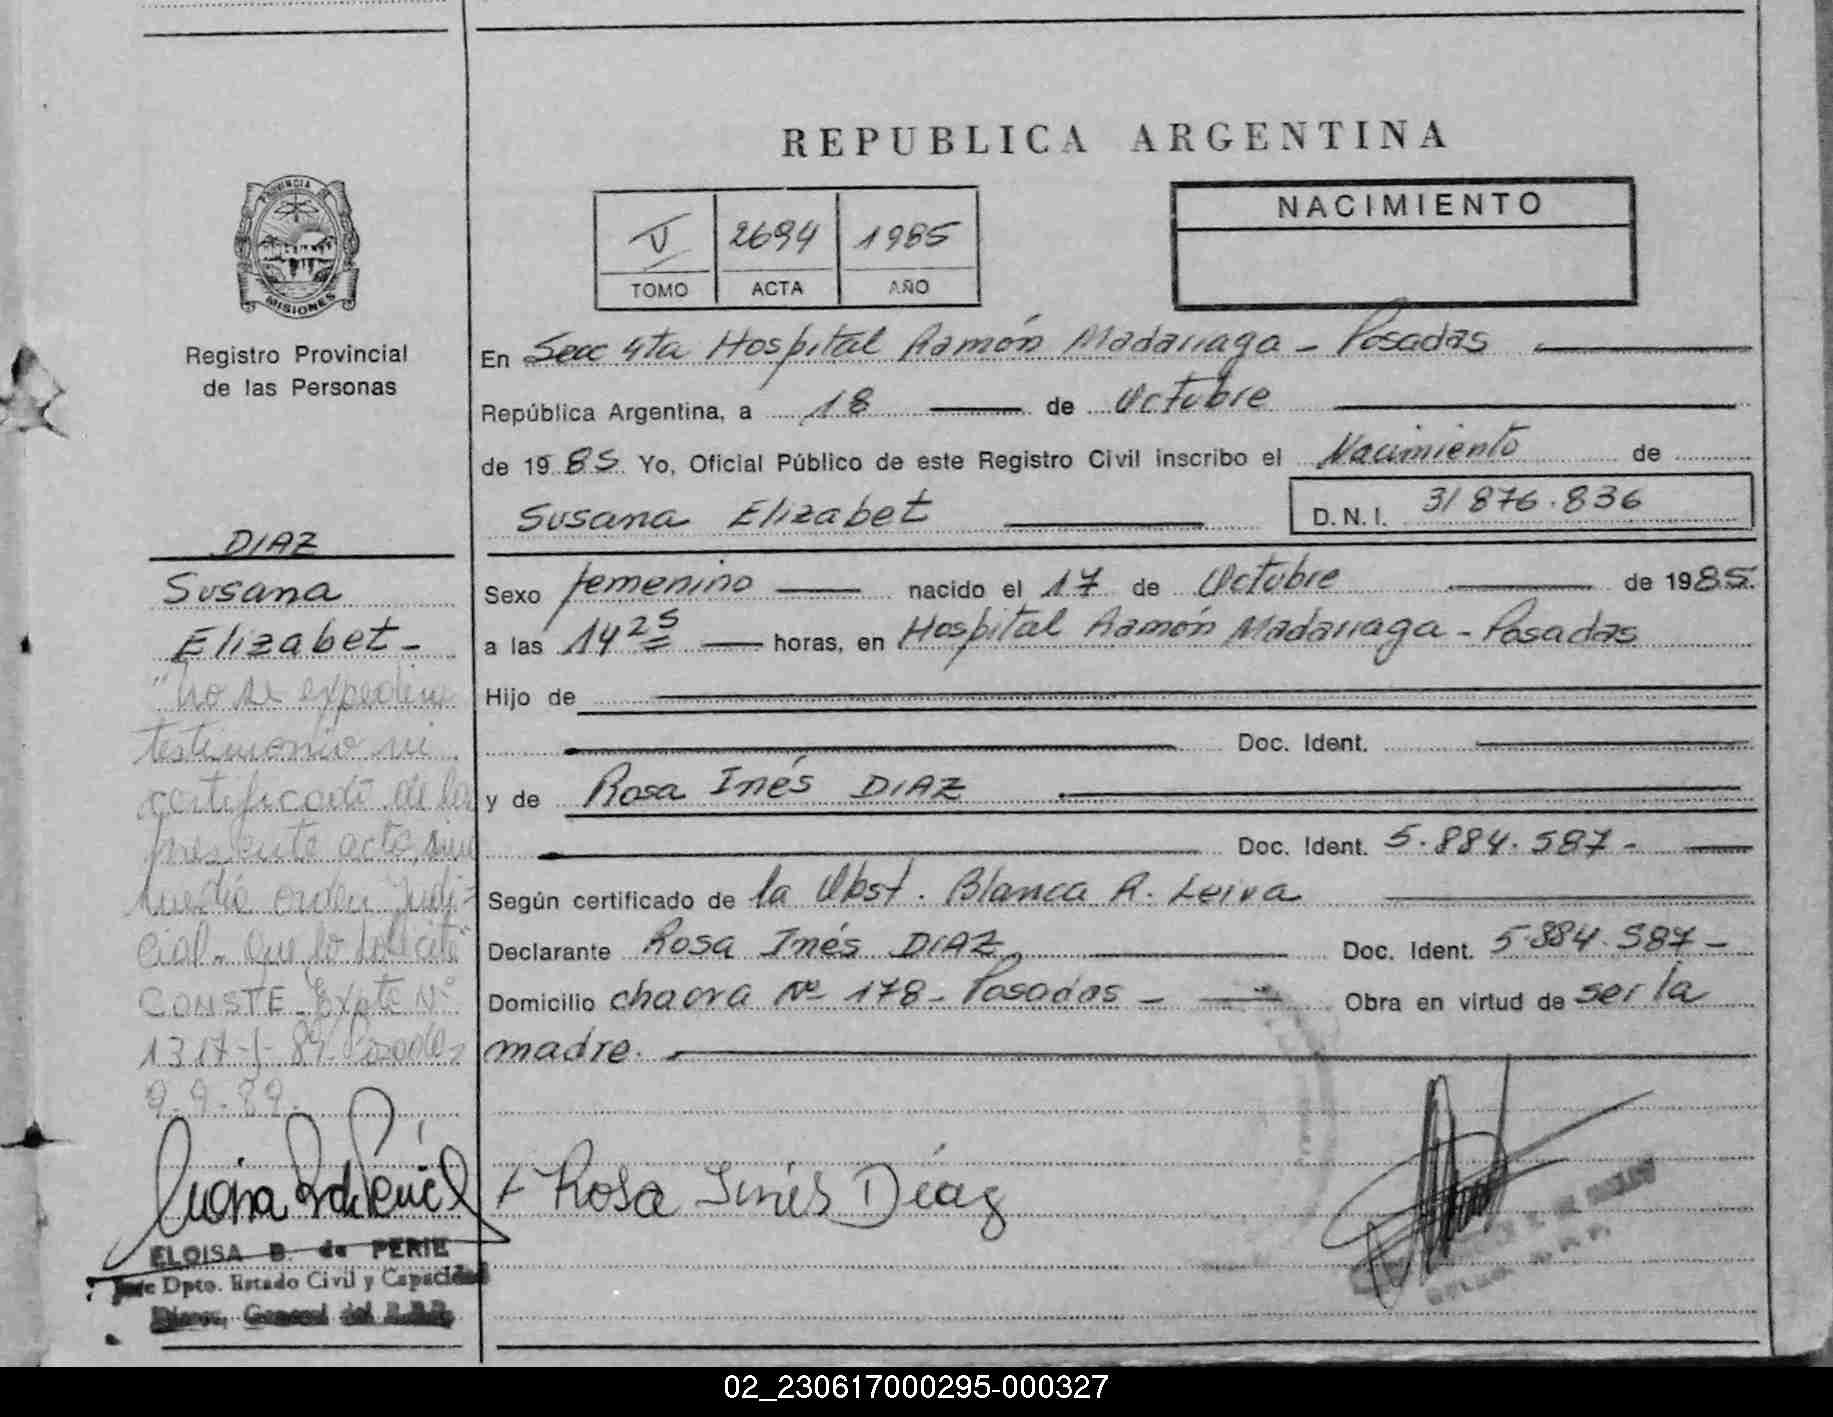 REPUBLICA ARGENTINA
V 2694 1985
TOMO ACTA AÑO
NACIMIENTO
PROVINCIA DE MISIONES
Registro Provincial
de las Personas
En Secc 4ta Hospital Ramón Madariaga - Posadas
República Argentina, a 18 de Octubre
de 1985 Yo, Oficial Público de este Registro Civil inscribo el Nacimiento de
Susana Elizabet D.N.I. 31876.836
Sexo femenino nacido el 17 de Octubre de 1985.
a las 14 25 horas, en Hospital Ramón Madariaga - Posadas
Hijo de
Doc. Ident.
y de Rosa Inés DIAZ
Doc. Ident. 5.884.587-
Según certificado de la Obst. Blanca R. Leiva
Declarante Rosa Inés DIAZ Doc. Ident. 5.884.587-
Domicilio chacra Nº 178- Posadas - Obra en virtud de ser la
madre.
Rosa Inés Díaz
DIAZ
Susana
Elizabet-
"no se expedirá
testimonio ni
certificado de la
presente acta, sin
medie orden judi-
cial- que lo solicite"
CONSTE- Expte Nº
1317-
9.9.89.
ELOISA B. de PERIE
Jefe Dpto. Estado Civil y Capacidad
General del
02_230617000295-000327